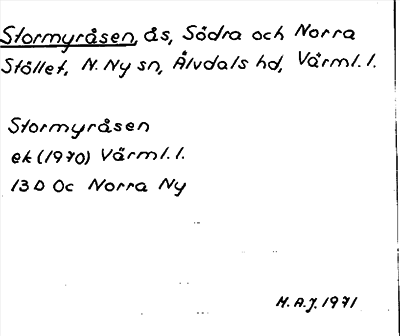 Stormyråsen, ås, Södra och Norra
Stöllet, N. Ny sn, Älvdals hd, Värml. l.
Stormyråsen
ek (1970) Värml. l.
13 D 0c Norra Ny
H.A.J. 1971